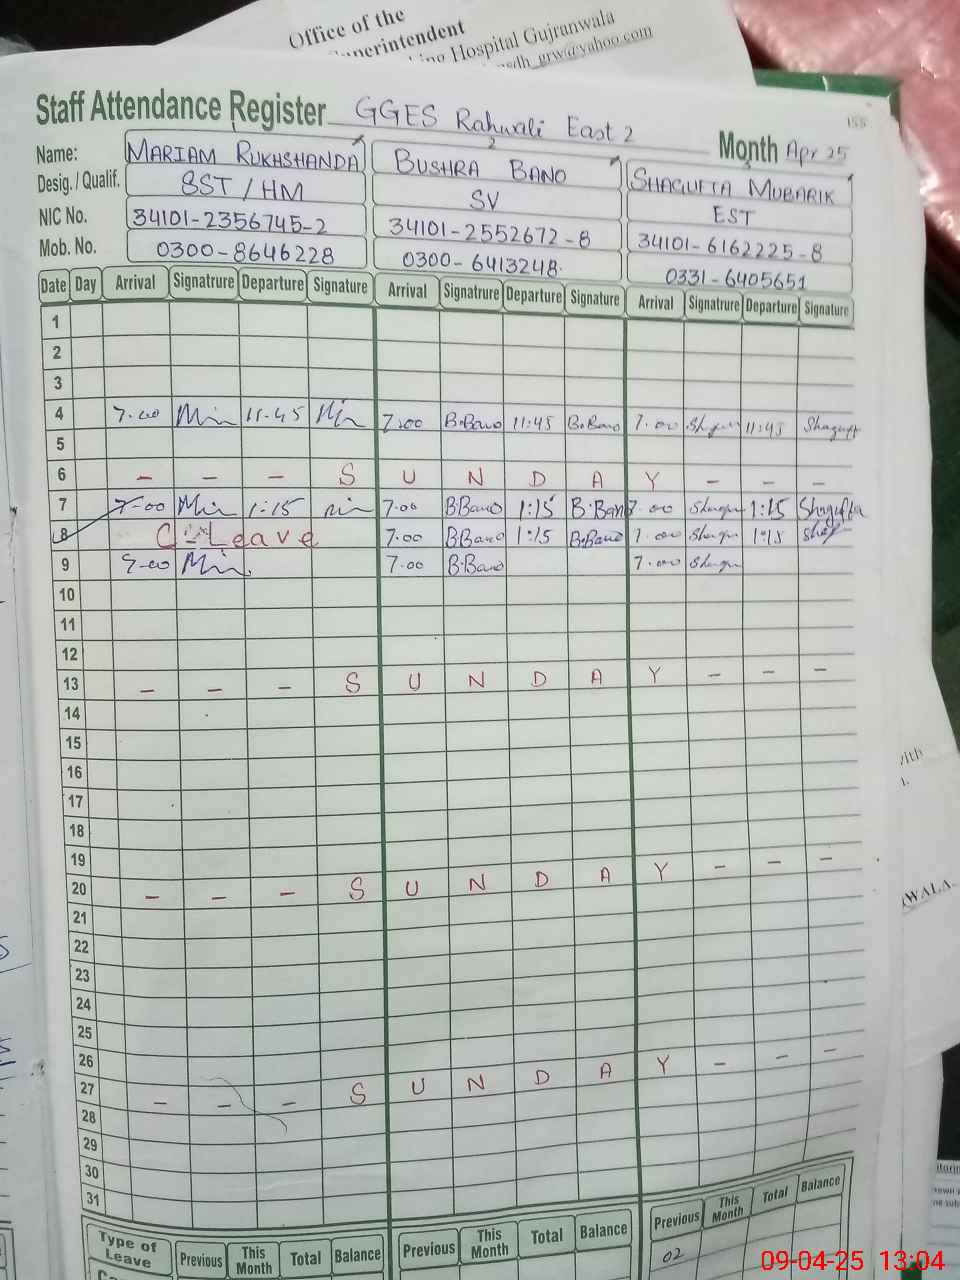 Office of the
Hospital Gujranwala
Staff Attendance Register GGES Rahwali East 2
Month Apr 25
155
Name: MARIAM RUKHSHANDA 2 BUSHRA BANO 3 SHAGUFTA MUBARIK
Desig. / Qualif. SST / HM SV EST
NIC No. 34101-2356745-2 34101-2552672-8 34101-6162225-8
Mob. No. 0300-8646228 0300-6413248 0331-6405651
Date Day Arrival Signatrure Departure Signature Arrival Signatrure Departure Signature Arrival Signatrure Departure Signature
1
2
3
4 7.00 11.45 7.00 B.Bano 11:45 B.Bano 7.00 11:45 Shagufta
5
6 - - - S U N D A Y - - -
7 7-00 1:15 7.00 B.Bano 1:15 B.Bano 7.00 1:15 Shagufta
8 C. Leave 7.00 B.Bano 1:15 B.Bano 7.00 1:15
9 7.00 B.Bano 7.00
10
11
12
13 - - - S U N D A Y - - -
14
15
16
17
18
19
20 - - - S U N D A Y - - -
21
22
23
24
25
26
27 - - - S U N D A Y - - -
28
29
30
31
Type of Leave Previous This Month Total Balance Previous This Month Total Balance Previous This Month Total Balance
02
WALA.
09-04-25 13:04